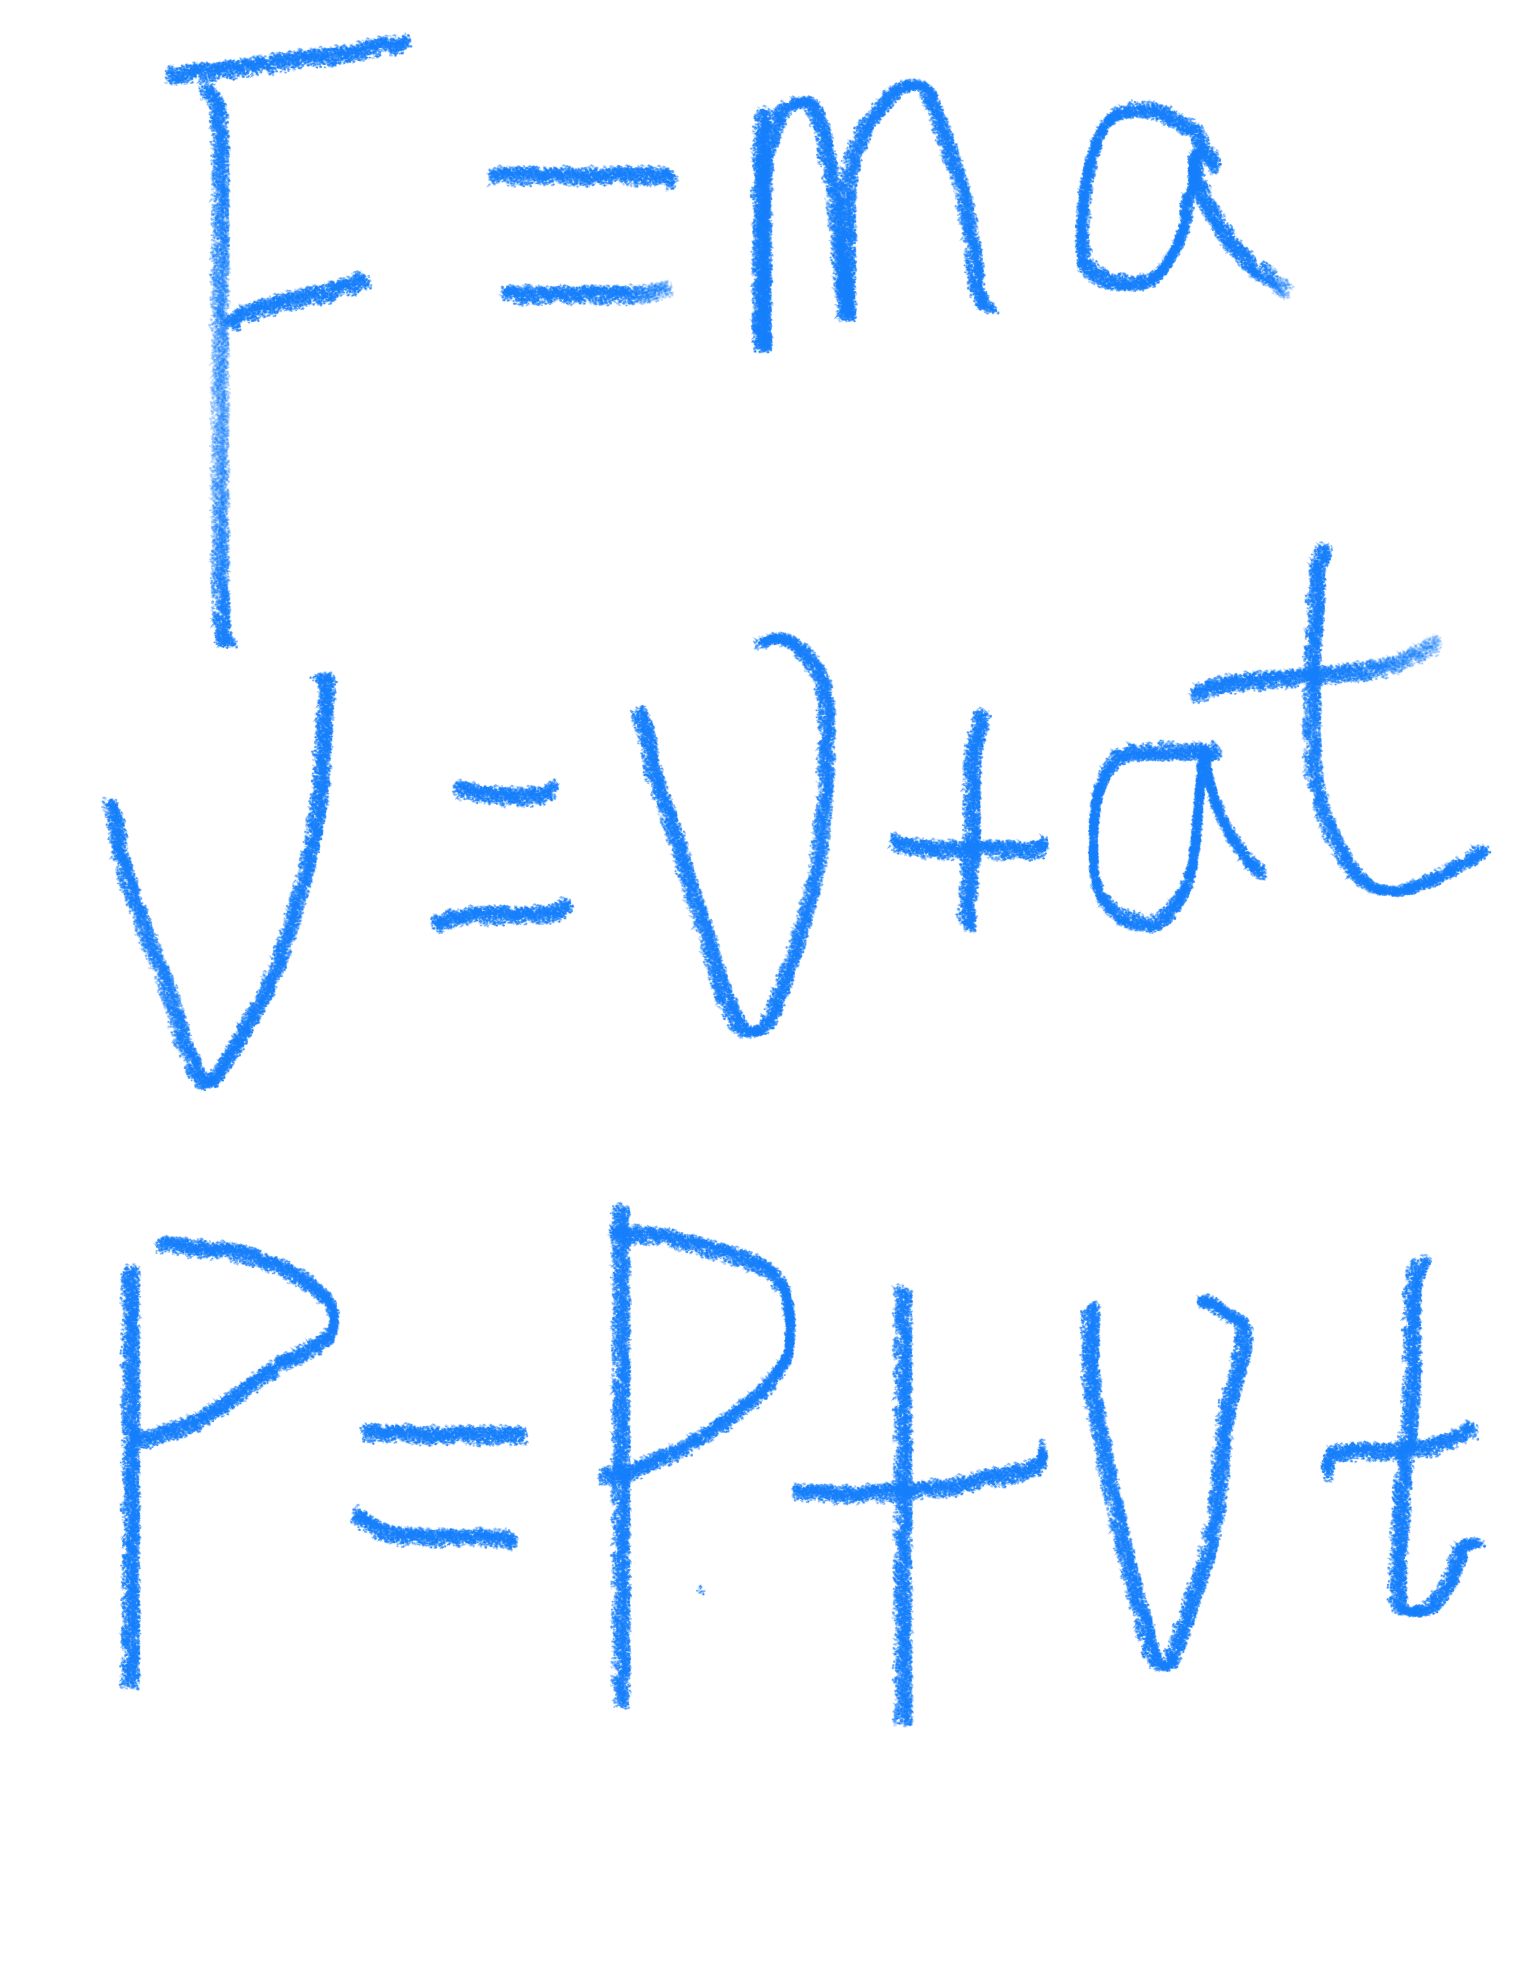 F = ma
V = V + at
P = P + Vt